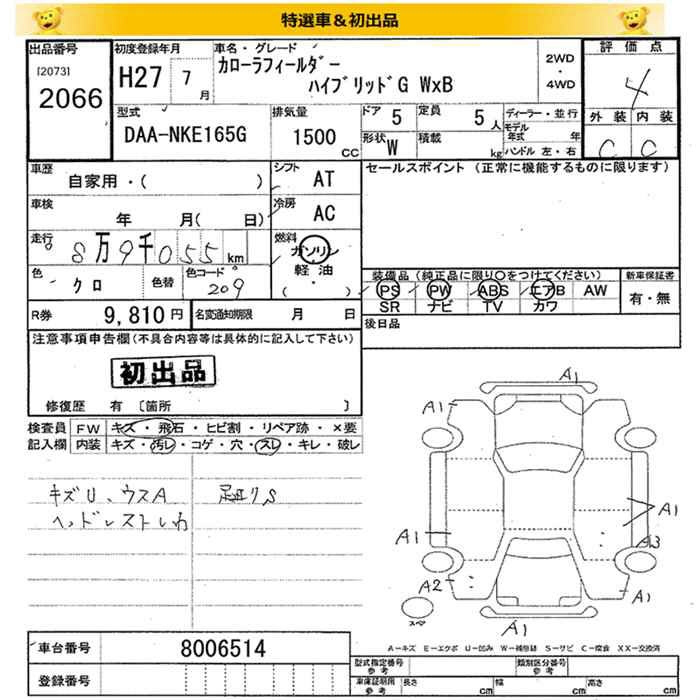 特選車&初出品
出品番号
[2073]
2066
初度登録年月
H27 7月
車名・グレード
カローラフィールダー
ハイブリッドG W×B
2WD
・
4WD
評価点
4
外装 内装
C C
型式
DAA-NKE165G
排気量
1500 CC
ドア 5
定員 5人
形状 W
積載 kg
ディーラー・並行
モデル年式 年
ハンドル 左・右
車歴
自家用・( )
シフト
AT
車検
年 月( 日)
冷房
AC
走行
8万9千055km
燃料
ガソリン
軽油
( ・ )
色
クロ
色替
色コード
209
R券
9,810円
名変通知期限
月 日
セールスポイント(正常に機能するものに限ります)
装備品(純正品に限り○をつけてください)
PS PW ABS エアB AW
SR ナビ TV カワ
新車保証書
有・無
後日品
注意事項申告欄(不具合内容等は具体的に記入して下さい)
初出品
修復歴 有〔箇所 〕
検査員記入欄
FW キズ・飛石・ヒビ割・リペア跡・×要
内装 キズ・汚レ・コゲ・穴・スレ・キレ・破レ
キズU、ウスA
ヘッドレストしわ
足廻りS
A1
A1
A1
A1
A3
A2
A1
A1
スペア
A-キズ E-エクボ U-凹み W-補修跡 S-サビ C-腐食 XX-交換済
車台番号 8006514
登録番号
型式指定番号 参考
類別区分番号 参考
車庫証明用 参考
長さ cm 幅 cm 高さ cm